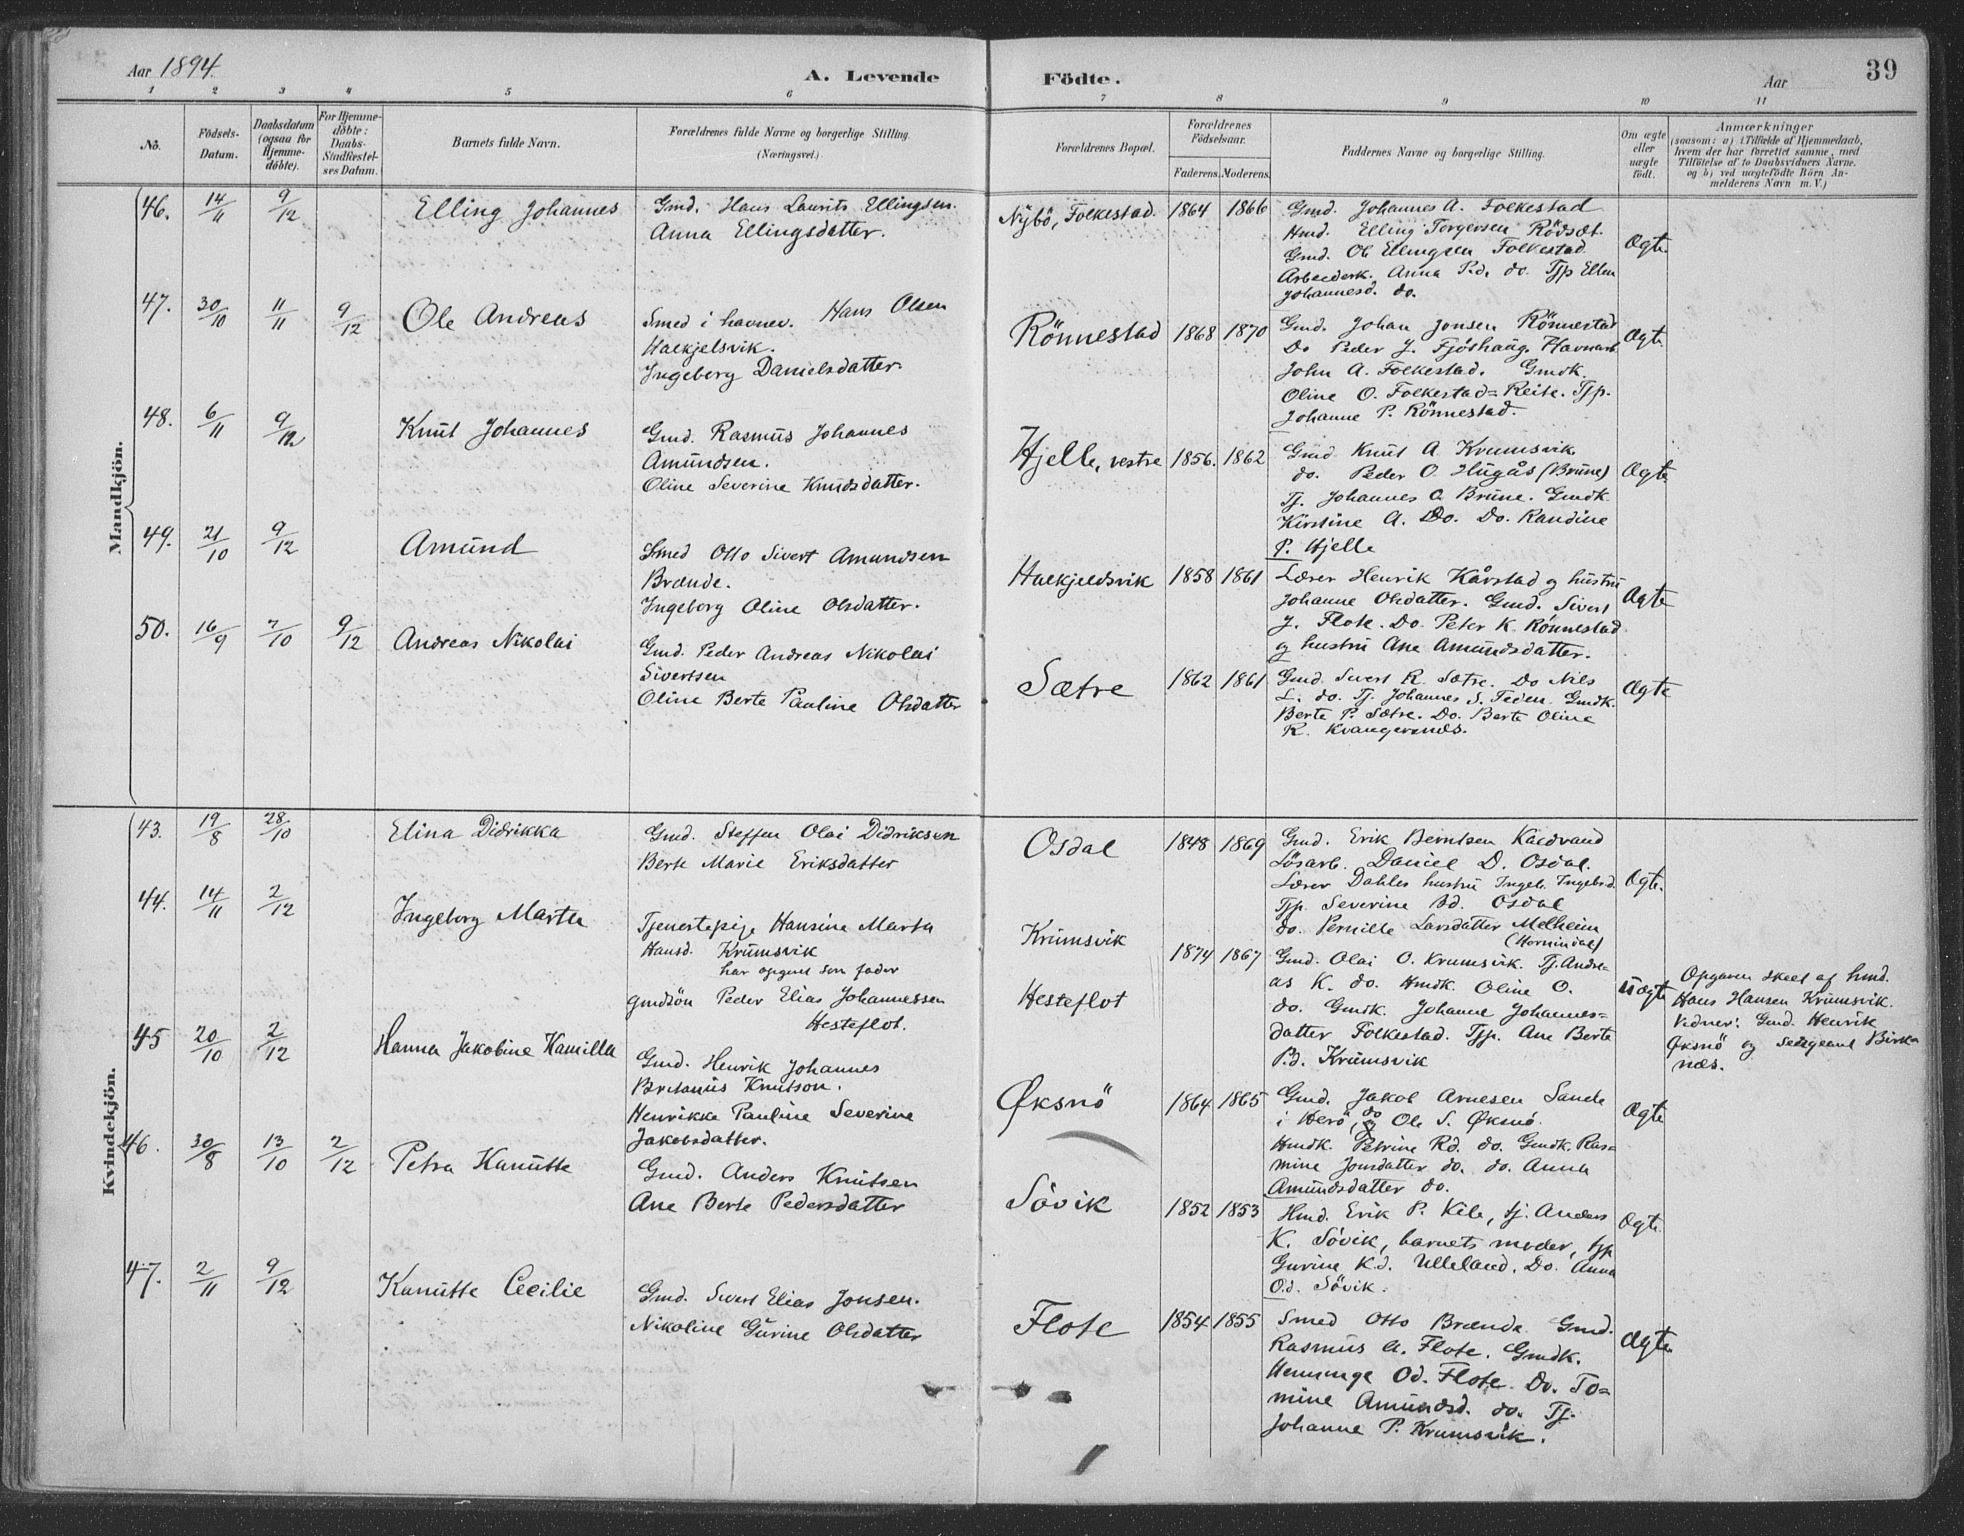 Aar 1894.
A. Levende Födte.
Aar
39
1 2 3 4 5 6 7 8 9 10 11
No.
Födsels-Datum.
Daabsdatum (ogsaa for Hjemme-döbte).
For Hjemme-döbte: Daabs-Stadfæstel-ses Datum.
Barnets fulde Navn.
Forældrenes fulde Navne og borgerlige Stilling. (Næringsvei).
Forældrenes Bopæl.
Forældrenes Födselsaar.
Faderens. Moderens.
Faddernes Navne og borgerlige Stilling.
Om ægte eller uægte födt.
Anmærkninger
(saasom: a) i Tilfælde af Hjemmedaab,
hvem der har forrettet samme, med
Tilföielse af to Daabsvidners Navne.
og b) ved uægtefödte Börn An-
melderens Navn m. V.)
Mandkjön.
46. 14/11 9/12 Elling Johannes
Gmd. Hans Laurits Ellingsen.
Anna Ellingsdatter.
Nybö, Folkestad. 1864 1866
Gmd. Johannes A. Folkestad
Hmd. Elling Torgersen Rödsæt.
Gmd. Ole Ellingsen Folkestad
Arbeiderk. Anna P.d. do. Tjp Ellen
Johannesd. do.
Ægte.
47. 30/10 11/11 9/12 Ole Andreas
Smed i havnev. Hans Olsen
Halkjelsvik.
Ingeborg Danielsdatter.
Rönnestad 1868 1870
Gmd. Johan Jonsen Rönnestad
Do Peder J. Fjöshaug. Havnarb.
John A. Folkestad. Gmdk.
Oline O. Folkestad=Reite. Tjp.
Johanne P. Rönnestad.
Ægte.
48. 6/11 9/12 Knut Johannes
Gmd. Rasmus Johannes
Amundsen.
Oline Severine Knudsdatter.
Hjelle, vestre 1856. 1862
Gmd Knut A. Krumsvik
do. Peder O. Hugås (Brune)
Tj. Johannes O. Brune. Gmdk
Kirstine A. Do. Do. Randine
P. Hjelle
Ægte
49. 21/10 9/12 Amund
Smed Otto Sivert Amundsen
Brænde.
Ingeborg Oline Olsdatter.
Halkjeldsvik 1858 1861
Lærer Henrik Kårstad og hustru
Johanne Olsdatter. Gmd. Sivert
J. Flote. Do. Peter K. Rönnestad
og hustru Ane Amundsdatter.
Ægte
50. 16/9 7/10 9/12 Andreas Nikolai
Gmd. Peder Andreas Nikolai
Sivertsen
Oline Berte Pauline Olsdatter
Sætre 1862 1861
Gmd Sivert R. Sætre. Do Nils
L. do. Tj. Johannes S. Gmdk.
Berte P. Sætre. Do. Berte Oline
R. Kvangersnes.
Ægte
Kvindekjön.
43. 19/8 28/10 Elina Didrikka
Gmd. Steffen Olai Didriksen
Berte Marie Eriksdatter
Osdal 1848 1869
Gmd. Erik Berntsen Kaldvand
Lösarb. Daniel D. Osdal.
Lærer Dahles hustru Ingeb. Ingebr.d.
Tjp. Severine Bd. Osdal
do. Pernille Larsdatter Melheim
(Hornindal)
Ægte.
44. 14/11 2/12 Ingeborg Marta
Tjenertepige Hansine Marta
Hansd. Krumsvik
har opgivet som fader
gmdsön Peder Elias Johannessen
Hesteflot.
Krumsvik
Hesteflot
1874 1867
Gmd. Olai O. Krumsvik. Tj. Andre-
as K. do. Hmdk. Oline O.
do. Gmdk. Johanne Johannes=
datter Folkestad. Tjp. Ane Berte
P.d. Krumsvik
Uægte
Opgaven skeet af hmd.
Hans Hansen Krumsvik.
Vidner: Gmd. Henrik
Øksnö og sergeant Birke
næs.
45 20/10 2/12 Hanna Jakobine Kamilla
Gmd. Henrik Johannes
Britanus Knutson.
Henrikke Pauline Severine
Jakobsdatter.
Øksnö 1864 1865
Gmd. Jakob Arnesen Sande
i Herö, do Ole S. Øksnö.
Hmdk. Petrine Rd. do. Gmdk. Ras=
mine Jonsdatter do. do. Anna
Amundsdatter do.
Ægte
46. 30/8 13/10 2/12 Petra Kanutte
Gmd. Anders Knutsen
Ane Berte Pedersdatter
Sövik 1852 1853
Hmd. Erik P. Kile, tj. Anders
K. Sövik, barnets moder, tjp
Gurine K.d. Ulleland. Do. Anna
O.d. Sövik.
Ægte.
47. 2/11 9/12 Kanutte Cecilie
Gmd. Sivert Elias Jonsen.
Nikoline Gurine Olsdatter
Flote 1854 1855
Smed Otto Brænde Gmd.
Rasmus A. Flote. Gmdk.
Hemminge Od. Flote. Do. To=
mine Amundsd. do. Tj.
Johanne P. Krumsvik.
Ægte.